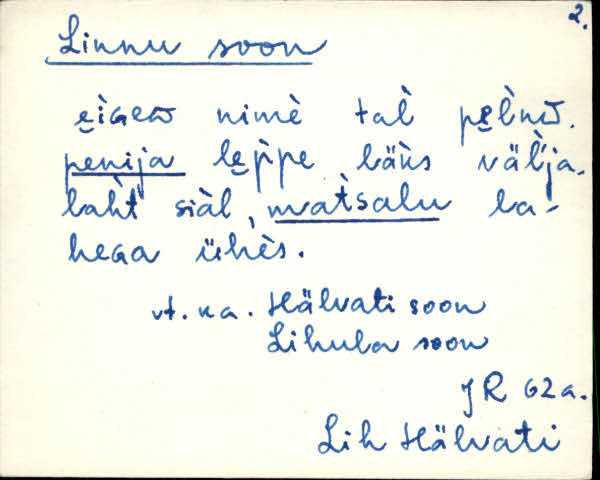 2.
Linnu soon
ẹìɢew nimè tal̀ pẹl̀nw.
penija lẹp̀pe läks väl̀ja.
laht̀ siàl, mat̀salu la-
heɢa ühès.
vt. ka. Hälvati soon
Lihula soon
JR 62a.
Lih Hälvati